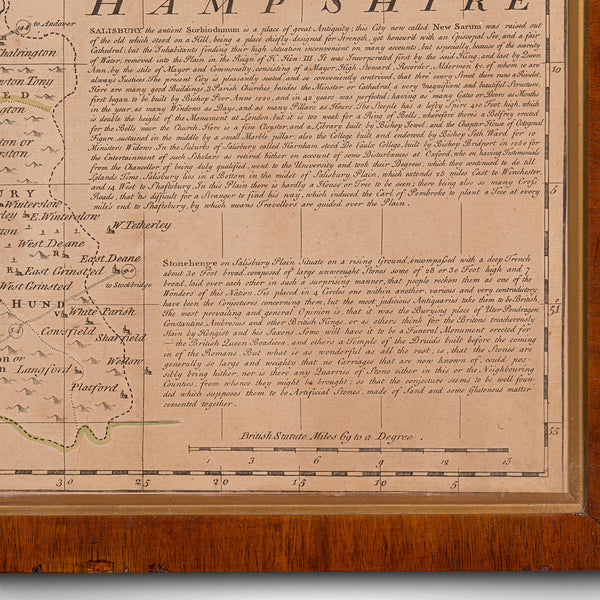 HAMPSHIRE
to Andover
Chalrington
Newton Tony
SALISBURY the antient Sorbiodunum is a place of great Antiquity; this City now called New Sarum was raised out
of the old which stood on a Hill, being a place chiefly designed for Strength, yet honour'd with an Episcopal See, and a fair
Cathedral; but the Inhabitants finding their high Situation inconvenient on many accounts, but especially, because of the scarcity
of Water, removed into the Plain in the Reign of K. Hen: III. It was Incorporated first by the said King, and last by Queen
Ann, by the stile of Mayor and Commonalty, consisting of a Mayor, High Steward, Recorder, Aldermen, &c. of whom 10 are
always Justices. The present City is pleasantly seated, and so conveniently contrived, that thro' every Street there runs a Rivulet.
Here are many good Buildings, 3 Parish Churches besides the Minster or Cathedral a very Magnificent and beautiful Structure,
first began to be built by Bishop Poor Anno 1220, and in 42 years was perfected; having as many Gates or Doors as Months
in the year, as many Windows as Days, and as many Pillars as Hours. The Steeple has a lofty Spire 410 Foot high, which
is double the height of the Monument at London, but it is too weak for a Ring of Bells, therefore theres a Belfrey erected
for the Bells near the Church. Here is a fine Cloyster, and a Library built by Bishop Jewel, and the Chapter House of Octogonal
Figure sustained in the middle by a small Marble pillar; also the College built and endowed by Bishop Seth Ward for 10
Ministers Widows. In the Suburbs of Salisbury called Harnham stood De Vaulx College, built by Bishop Bridport in 1260 for
the Entertainment of such Scholars as retired hither on account of some Disturbances at Oxford, who on having Testimonials
from the Chancellor of being duly qualified, went to the University and took their Degrees, which they continued to do till
Leland's Time. Salisbury lies in a Bottom in the midst of Salisbury Plain, which extends 25 miles East to Winchester,
and 14 West to Shaftsbury. In this Plain there is hardly a House or Tree to be seen; there being also so many Cross
Roads, that tis difficult for a Stranger to find his way, which induced the Earl of Pembroke to plant a Tree at every
mile's end to Shaftsbury, by which means Travellers are guided over the Plain.
Winterslow
E. Winterslow
W. Tetherley
West Deane
East Deane
East Grinsted
West Grinsted
to Stockbridge
HUND
White Parish
Cowsfield
Sharfield
Wellow
Langford
Platford
Stonehenge on Salisbury Plain Situate on a rising Ground, encompassed with a deep Trench
about 30 Foot broad, composed of large unwrought Stones some of 28 or 30 Foot high and 7
broad, laid over each other in such a surprising manner, that people reckon them as one of the
Wonders of this Nation. Tis placed in 4 Circles one within another, various and very contradictory
have been the Conjectures concerning them, but the most judicious Antiquaries take them to be British.
The most prevailing and general Opinion is, that it was the Burying place of Uter Pendragon,
Constantine, Ambrosius and other British Kings, or as others think for the Britons treacherously
Slain by Hengist and his Saxons. Some will have it to be a Funeral Monument erected for
the British Queen Boadicea, and others a Temple of the Druids built before the coming
in of the Romans. But what is as wonderful as all the rest, is, that the Stones are
generally so large and weighty that no Carriages that are now known of, could possibly
bring hither, nor is there any Quarries of Stone either in this or the Neighbouring
Counties, from whence they might be brought; so that the conjecture seems to be well founded
which supposes them to be Artificial Stones, made of Sand and some Glutenous matter
cemented together.
British Statute Miles 69 to a Degree.
1 3 6 9 12 15
30 25 20 15 10 5
10
5
51
55